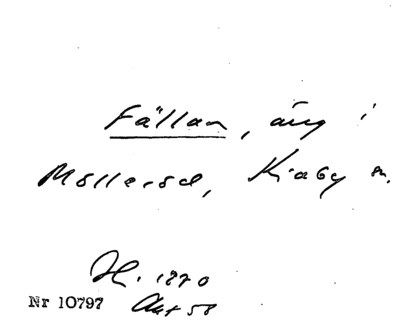 Fällan, äng i
Mölleröd, Kiaby sn.
H. 1870
Nr 10797 Akt 58